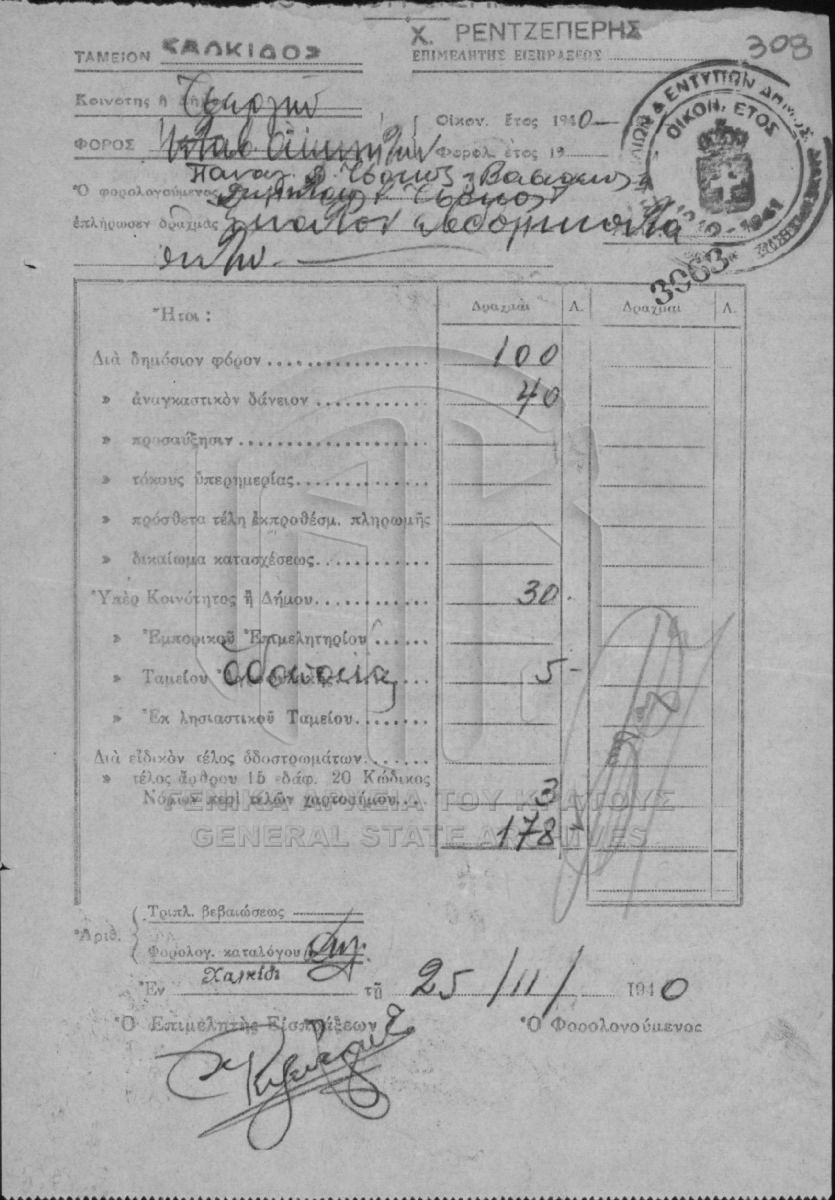 ΤΑΜΕΙΟΝ ΧΑΛΚΙΔΟΣ
Χ. ΡΕΝΤΖΕΠΕΡΗΣ
ΕΠΙΜΕΛΗΤΗΣ ΕΙΣΠΡΑΞΕΩΣ
309
Κοινότης ἢ Δῆμ
Οἰκον. ἔτος 1940
ΦΟΡΟΣ
Φορολ. ἔτος 19
ΟΙΚΟΝ. ΕΤΟΣ
1940-1941
Ὁ φορολογούμενος
ἐπλήρωσεν δραχμὰς ἑκατὸν ἑβδομήκοντα
ὀκτὼ
3063
Ἤτοι :
Δραχμαὶ Λ. Δραχμαὶ Λ.
Διὰ δημόσιον φόρον 100
» ἀναγκαστικὸν δάνειον 40
» προσαύξησιν
» τόκους ὑπερημερίας
» πρόσθετα τέλη ἐκπροθέσμ. πληρωμῆς
» δικαίωμα κατασχέσεως
Ὑπὲρ Κοινότητος ἢ Δήμου 30
» Ἐμπορικοῦ Ἐπιμελητηρίου
» Ταμείου 5
» Ἐκ λησιαστικοῦ Ταμείου
Διὰ εἰδικὸν τέλος ὁδοστρωμάτων
» τέλος ἄρθρου 15 ἐδάφ. 20 Κώδικος
Νόμων περὶ τελῶν χαρτοσήμου 3
178
ΓΕΝΙΚΑ ΑΡΧΕΙΑ ΤΟΥ ΚΡΑΤΟΥΣ
GENERAL STATE ARCHIVES
Ἀριθ.
Τριπλ. βεβαιώσεως
Φορολογ. καταλόγου
Ἐν Χαλκίδι τῇ 25/11/1940
Ὁ Ἐπιμελητὴς Εἰσπράξεων
Ὁ Φορολογούμενος